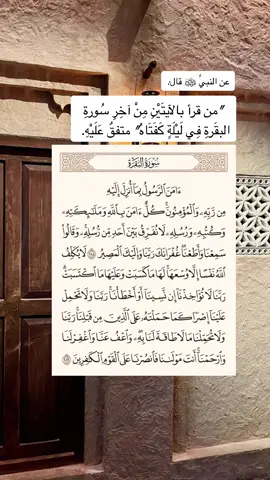 عن النبيِّ ﷺ قال:
"من قرأ بالآيتَيْنِ مِنْ آخِرِ سُورةِ
البقَرةِ فِي لَيْلَةٍ كَفَتَاهُ" متفقٌ عَلَيْهِ.
سُورَةُ البَقَرَةِ
ءَامَنَ ٱلرَّسُولُ بِمَآ أُنزِلَ إِلَيْهِ
مِن رَّبِّهِۦ وَٱلْمُؤْمِنُونَۚ كُلٌّ ءَامَنَ بِٱللَّهِ وَمَلَٰٓئِكَتِهِۦ
وَكُتُبِهِۦ وَرُسُلِهِۦ لَا نُفَرِّقُ بَيْنَ أَحَدٍ مِّن رُّسُلِهِۦۚ وَقَالُوا۟
سَمِعْنَا وَأَطَعْنَاۖ غُفْرَانَكَ رَبَّنَا وَإِلَيْكَ ٱلْمَصِيرُ ٢٨٥ لَا يُكَلِّفُ
ٱللَّهُ نَفْسًا إِلَّا وُسْعَهَاۚ لَهَا مَا كَسَبَتْ وَعَلَيْهَا مَا ٱكْتَسَبَتْۗ
رَبَّنَا لَا تُؤَاخِذْنَآ إِن نَّسِينَآ أَوْ أَخْطَأْنَاۚ رَبَّنَا وَلَا تَحْمِلْ
عَلَيْنَآ إِصْرًا كَمَا حَمَلْتَهُۥ عَلَى ٱلَّذِينَ مِن قَبْلِنَاۚ رَبَّنَا
وَلَا تُحَمِّلْنَا مَا لَا طَاقَةَ لَنَا بِهِۦۖ وَٱعْفُ عَنَّا وَٱغْفِرْ لَنَا
وَٱرْحَمْنَآۚ أَنتَ مَوْلَىٰنَا فَٱنصُرْنَا عَلَى ٱلْقَوْمِ ٱلْكَٰفِرِينَ ٢٨٦